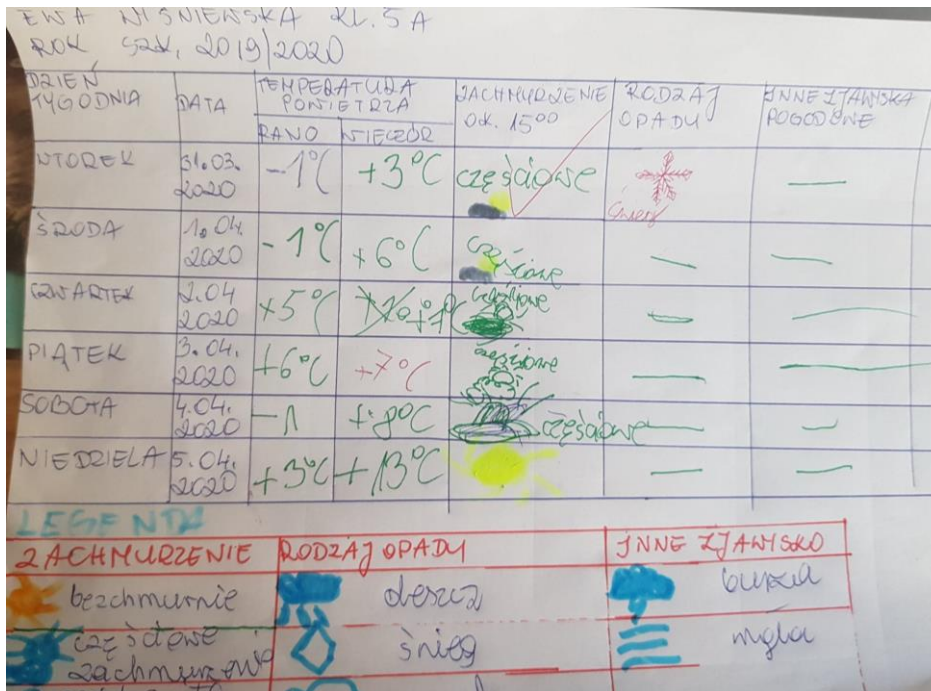 EWA WIŚNIEWSKA KL. 5A
ROK SZK. 2019/2020
DZIEŃ TYGODNIA DATA TEMPERATURA POWIETRZA ZACHMURZENIE ok. 15⁰⁰ RODZAJ OPADU INNE ZJAWISKA POGODOWE
RANO WIECZÓR
WTOREK 31.03. 2020 -1°C +3°C częściowe śnieg —
ŚRODA 1.04. 2020 -1°C +6°C częściowe — —
CZWARTEK 2.04 2020 +5°C częściowe — —
PIĄTEK 3.04. 2020 +6°C +7°C częściowe — —
SOBOTA 4.04. 2020 -1 +8°C częściowe — —
NIEDZIELA 5.04. 2020 +3°C +13°C — —
LEGENDA
ZACHMURZENIE RODZAJ OPADU INNE ZJAWISKO
bezchmurnie deszcz burza
częściowe zachmurzenie śnieg mgła